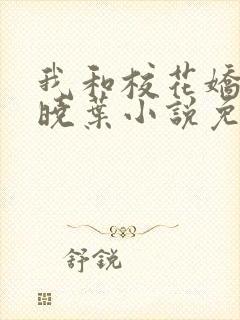 我和校花嬌
曉葉小說免
舒銳